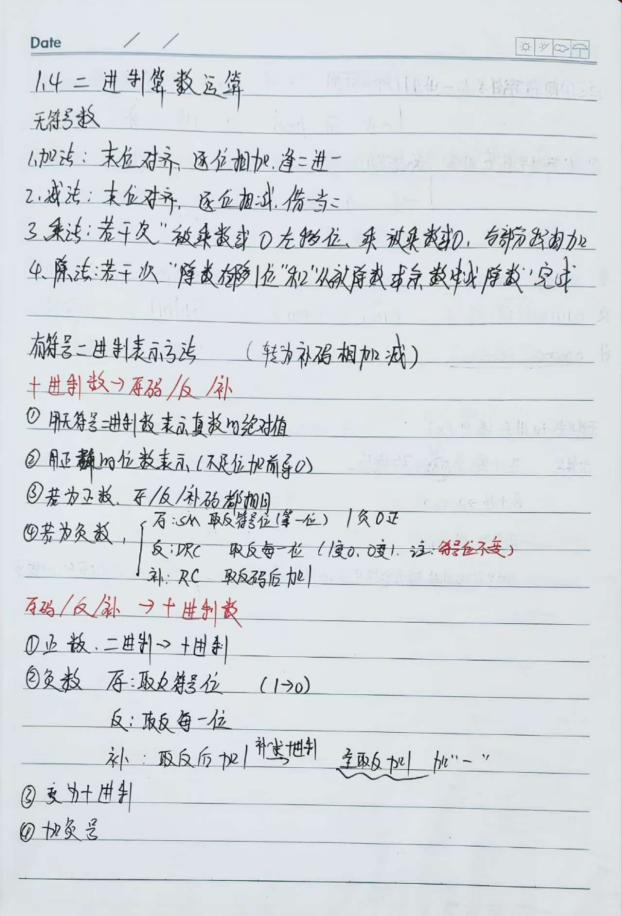 Date / /
1.4 二进制算数运算
无符号数
1.加法：末位对齐，逐位相加，逢二进一
2.减法：末位对齐，逐位相减，借一当二
3.乘法：若干次“被乘数或0左移位，乘被乘数或0，各部分积相加
4.除法：若干次“除数右移1位”和“从被除数或余数中减除数”完成
有符号二进制表示方法 （转为补码相加减）
十进制数→原码/反/补
① 用无符号二进制数表示真数的绝对值
② 用正确的位数表示（不足位加前导0）
③若为正数，原/反/补码都相同
④若为负数，
原：SM 取反符号位(第一位) 1负0正
反：DRC 取反每一位（1变0，0变1，注：符号位不变）
补：RC 取反码后加1
原码/反/补 → 十进制数
①正数，二进制→十进制
②负数 原：取反符号位 （1→0）
反：取反每一位
补：取反后加1 补变十进制 全取反加1 加“－”
③ 变为十进制
④ 加负号